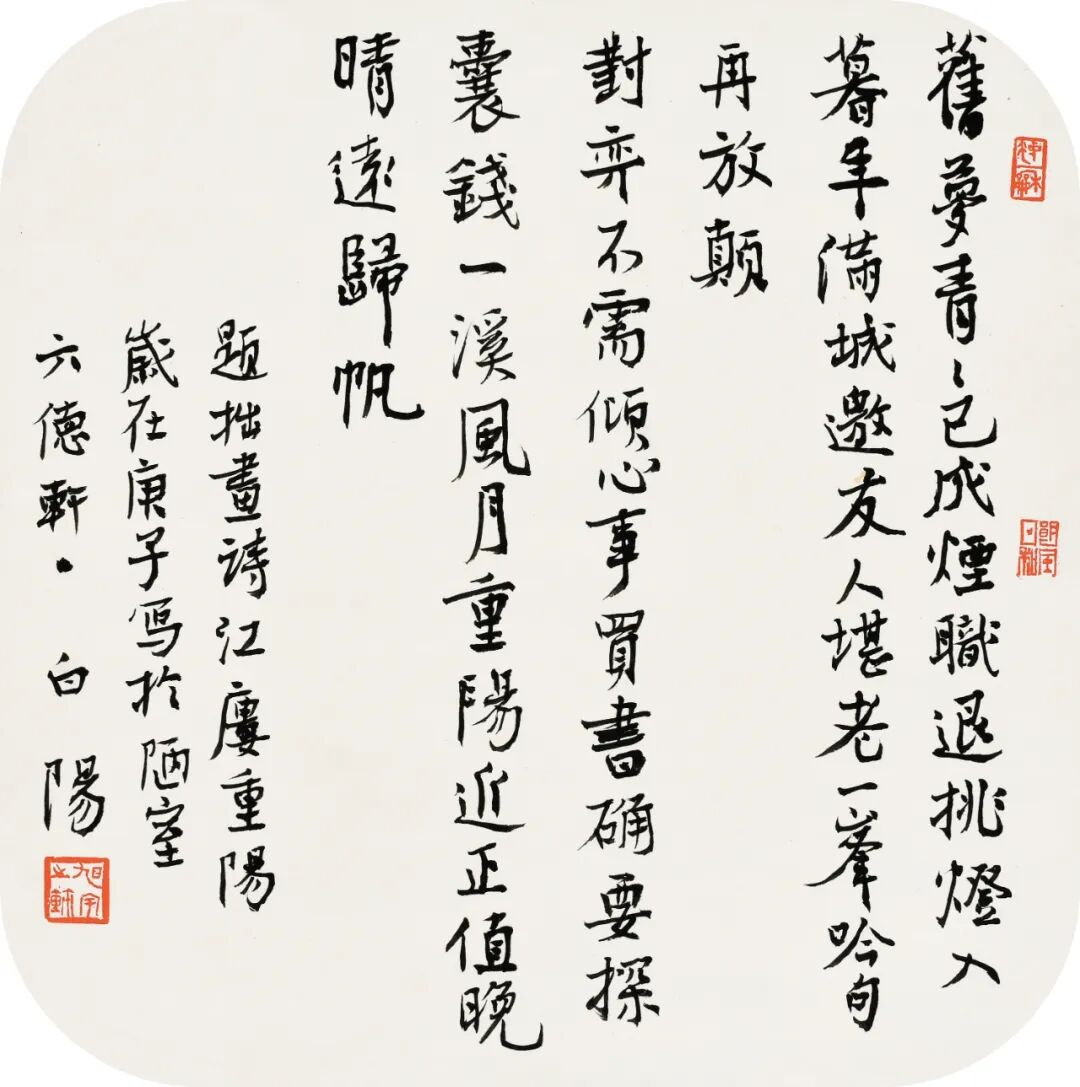 舊夢青〻已成煙職退挑燈入
暮年滿城邀友人堪老一峯吟句
再放顛
對弈不需傾心事買書确要探
囊錢一溪風月重陽近正值晚
晴遠歸帆
題拙畫詩江廔重陽
歲在庚子写於陋室
六德軒·白陽